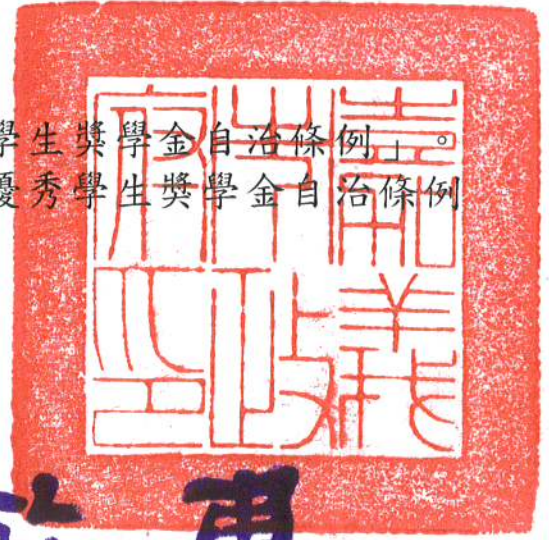 學生獎學金自治條例」。
優秀學生獎學金自治條例
嘉義
市政
府印